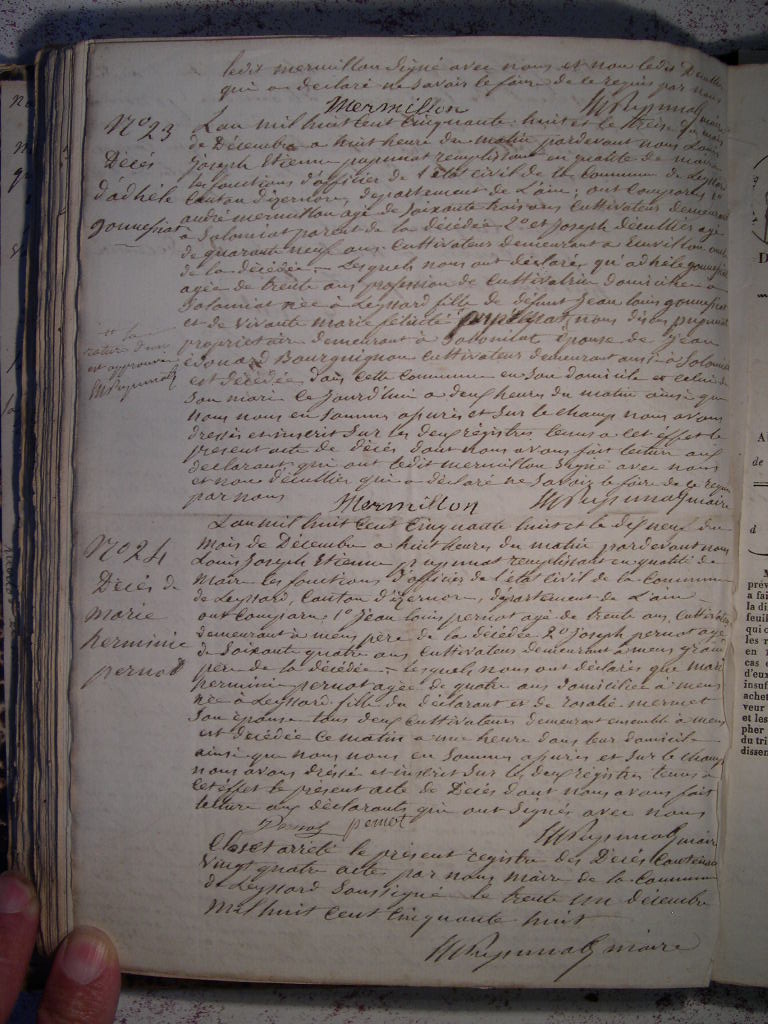 ledit mermillon signé avec nous et non ledit Décultier
qui a declaré ne savoir le faire de ce requis par nous
Mermillon maire
N° 23
Décés
d'adhèle
gonnessiat
L'an mil huit cent cinquante huit et le treize du mois
de Décembre a huit heure du matin pardevant nous Louis
Joseph Etienne puginat remplissant en qualité de maire
les fonctions d'officier de l'état civil de la Commune de Leyssard
Canton d'izernore, département de L'ain; ont Comparus 1°
andré mermillon agé de soixante trois ans cultivateur demeurant
a Solomiat parent de la décédée 2° et Joseph décultier agé
de quarante neuf ans cultivateur demeurant a
de la décédée. Lesquels nous ont déclarés qu'adhèle gonnessiat
agée de trente ans profession de cultivatrice domiciliée a
Solomiat née à Leyssard fille de défunt Jean louis gonnessiat
et de vivante marie félicité nous disons puginat
propriétaire demeurant à Solomiat épouse de Jean
édouard Bourguignon cultivateur demeurant aussi à Solomiat
est décédée dans cette commune en son domicile et celui de
son mari ce jourd'hui a deux heures du matin ainsi que
nous nous en sommes assurés et sur le champ nous avons
dressés et inscrit sur les deux régistres tenus a cet éffet le
présent acte de décés dont nous avons fait lecture aux
déclarants qui ont ledit mermillon signé avec nous
et non décultier qui a déclaré ne savoir le faire de ce requis
par nous Mermillon maire
la
rature d'un
est approuvée
N° 24
Décés de
marie
herminie
pernod
L'an mil huit cent cinquante huit et le dix neuf du
mois de Décembre a huit heures du matin pardevant nous
Louis Joseph Etienne puginat remplissant en qualité de
maire les fonctions d'officier de l'état civil de la Commune
de Leyssard, Canton d'izernore, département de L'ain
ont comparu: 1° Jean louis pernot agé de trente ans, cultivateur
demeurant a mens père de la décédée 2° Joseph pernot agé
de soixante quatre ans cultivateur demeurant à mens grand
père de la décédée. lesquels nous ont déclarés que marie
permini pernot agée de quatre ans domiciliée à mens
née à Leyssard fille du déclarant et de rosalie mermet
son épouse tous deux cultivateurs demeurant ensemble à mens
est décédée ce matin a une heure dans leur domicile
ainsi que nous nous en sommes assurés et sur le champ
nous avons dressé et inscrit sur les deux régistres tenus a
cet éffet le présent acte de Décés dont nous avons fait
lecture aux déclarants qui ont signés avec nous
Pernot pernot maire
Clos et arrêté le présent registre des Décés contenant
vingt quatre actes par nous maire de la commune
de Leyssard soussigné le trente un décembre
mil huit cent cinquante huit
maire